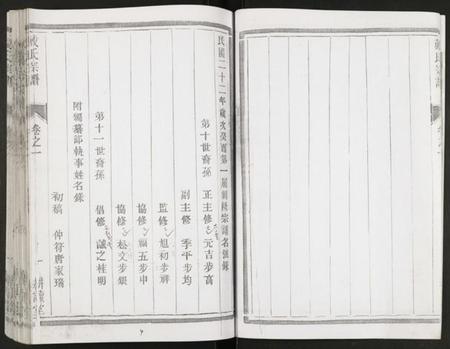 民國二十二年歲次癸酉第一屆續修宗譜名銜錄
第十世裔孫 正主修 元吉步高
副主修 季平步均
監修 旭初步
協修 五步申
協修 松文步銀
第十一世裔孫 倡修 誠之桂明
附編纂部執事姓名錄
初稿 仲符唐家瑞
氏宗譜
卷之一